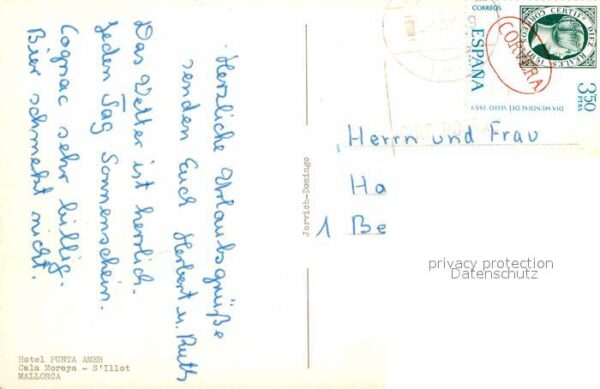 Herzliche Urlaubsgrüße
senden Euch Herbert u. Ruth
Das Wetter ist herrlich.
Jeden Tag Sonnenschein.
Cognac sehr billig.
Bier schmeckt nicht.
Hotel PUNTA AMER
Cala Moreya - S'Illot
MALLORCA
Jorvich-Domingo
CORREOS
ESPAÑA
DIA MUNDIAL DEL SELLO 1969
3'50
PTAS
CERTIFº DIEZ REALES. 1850 CORREOS
CORVERA
Herrn und Frau
Ha
1 Be
privacy protection
Datenschutz